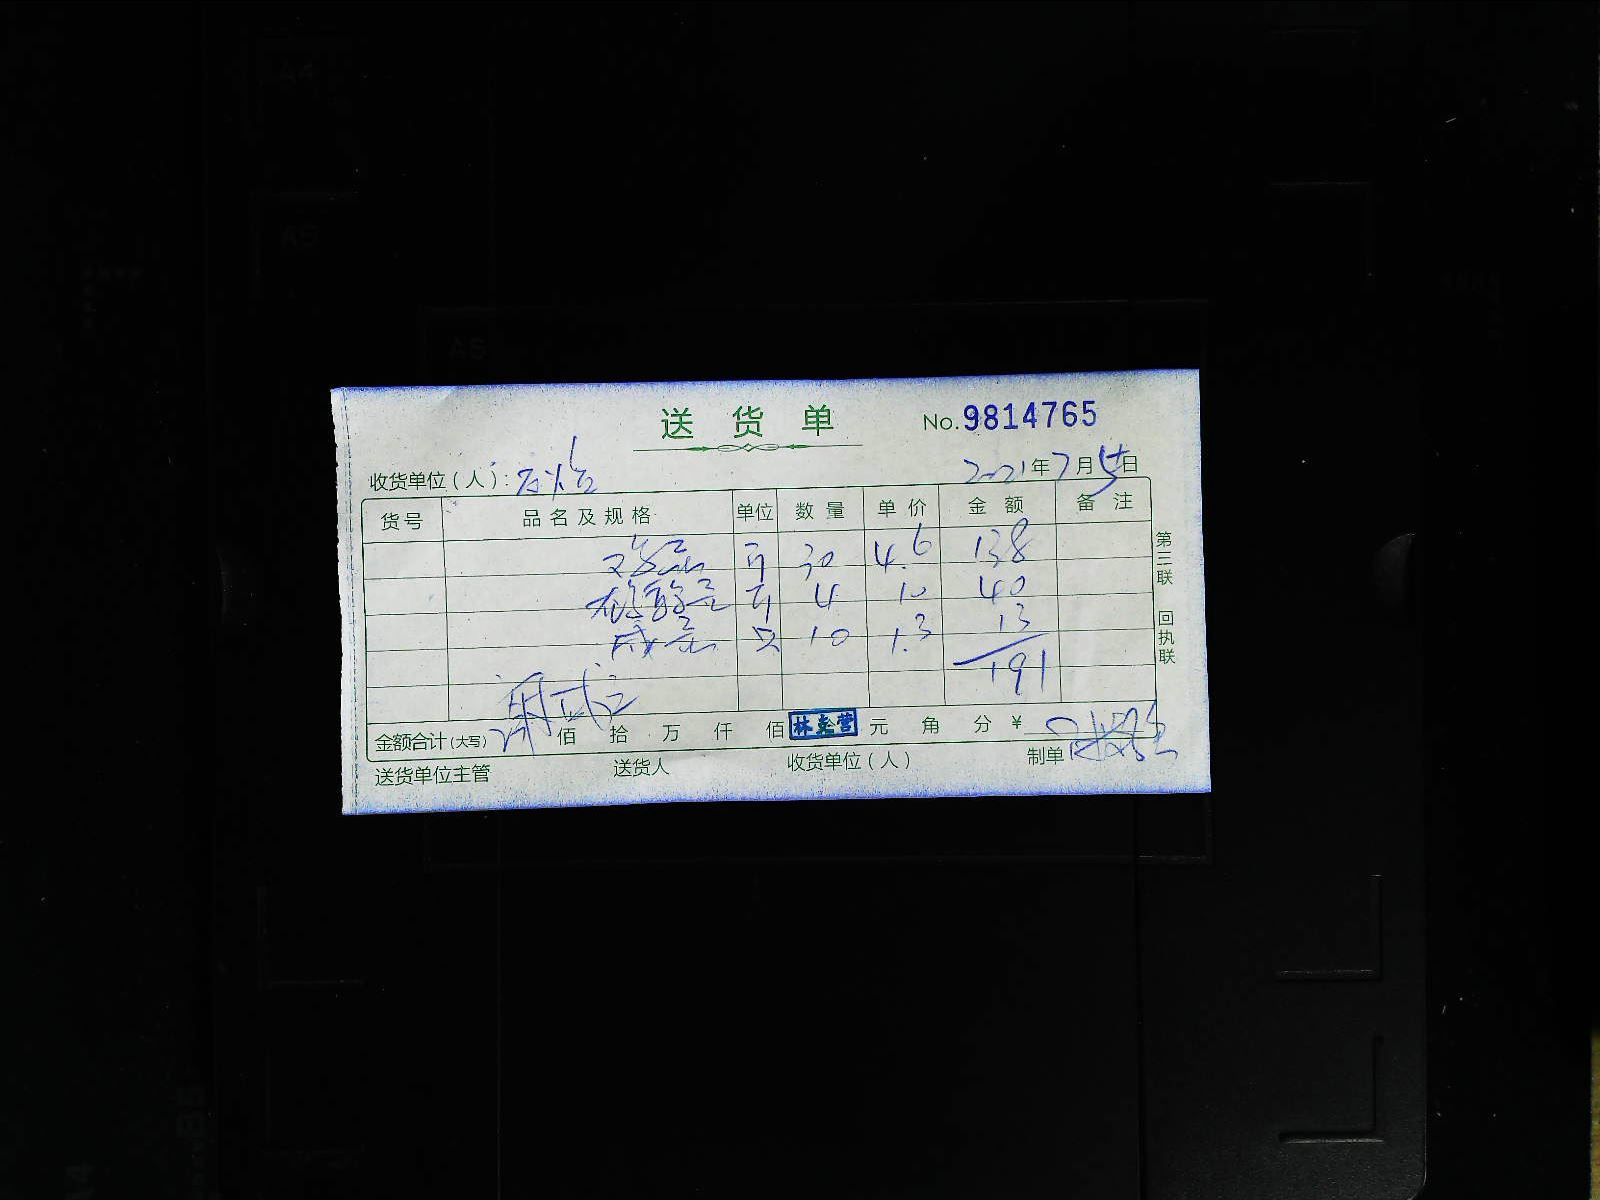 送货单 No.9814765
收货单位(人): 2021年7月5日
货号 品名及规格 单位 数量 单价 金额 备注
鸡蛋 斤 30 4.6 138
斤 4 10 40
咸蛋 只 10 1.3 13
191
金额合计(大写) 佰 拾 万 仟 佰 元 角 分 ¥
送货单位主管 送货人 收货单位(人) 制单
第三联 回执联